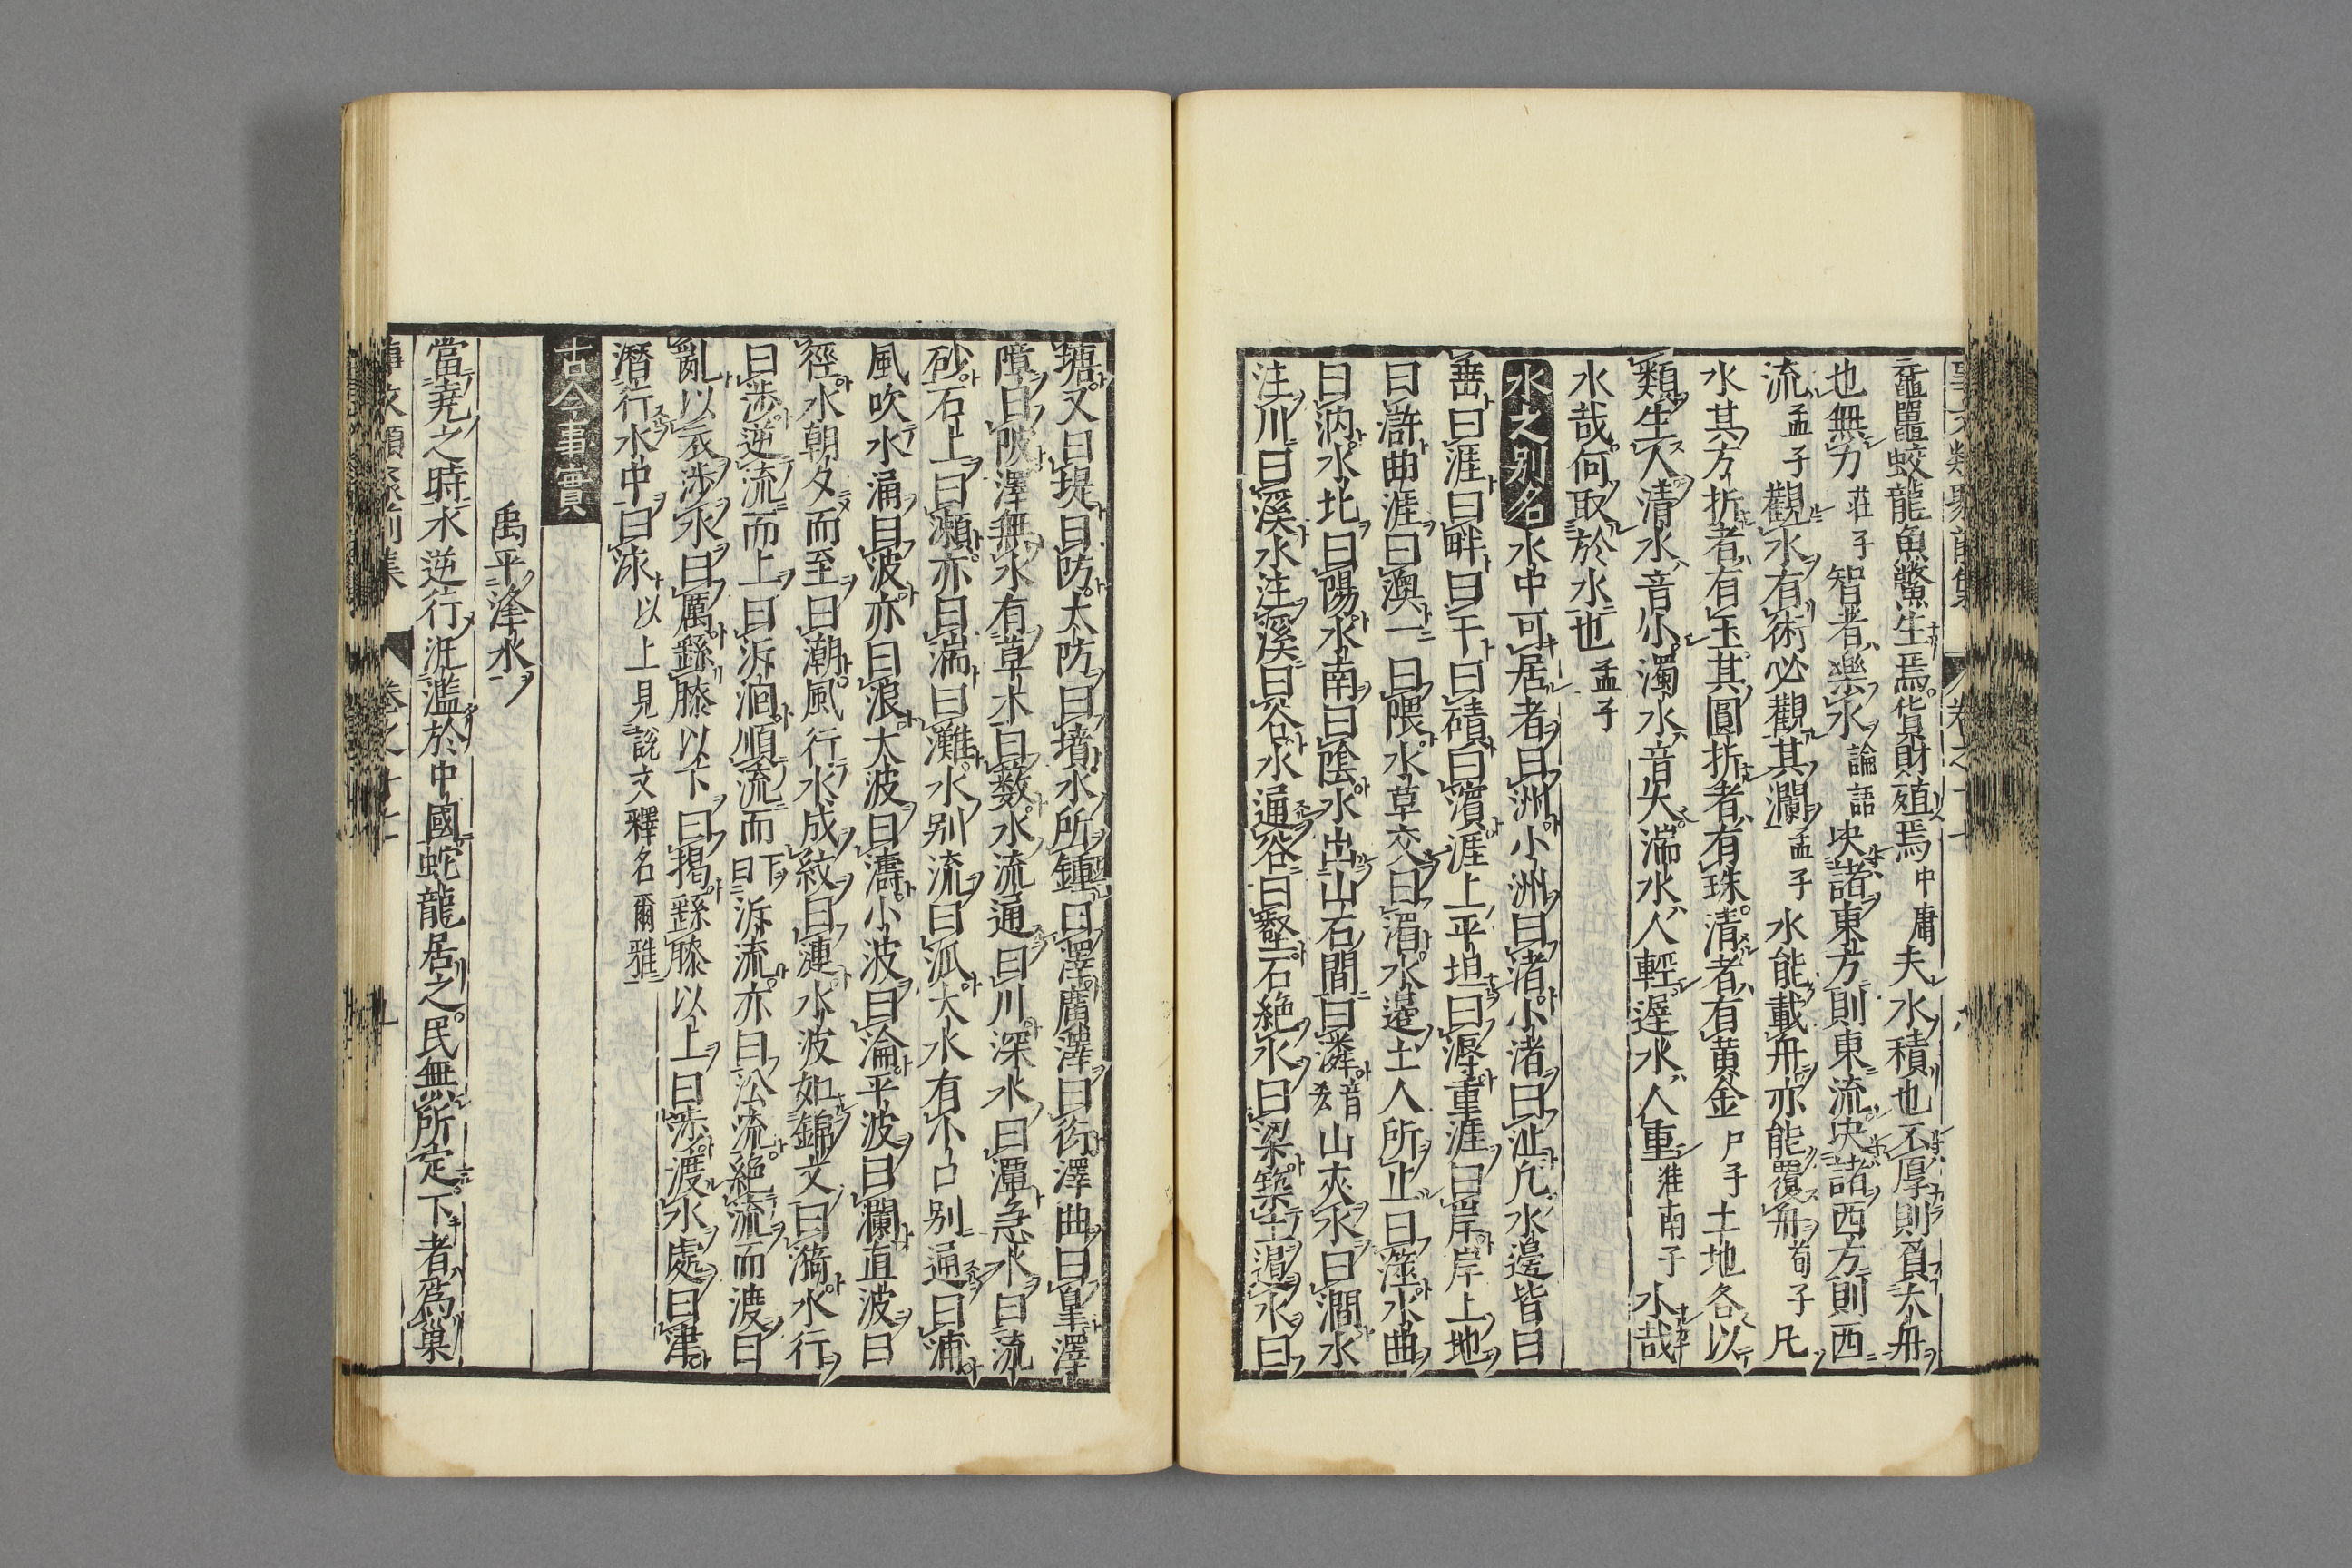 事文類聚前集 卷之十七 八
黿鼉蛟龍魚鱉生焉貨財殖焉中庸夫水積也不厚則負大舟
也無力莊子智者樂水論語決諸東方則東流決諸西方則西
流孟子觀水有術必觀其瀾孟子水能載舟亦能覆舟荀子凡
水其方折者有玉其圓折者有珠清者有黄金尸子土地各以
類生人清水音小濁水音大湍水人輕遲水人重淮南子水哉
水哉何取於水也孟子
水之别名水中可居者曰洲小洲曰渚小渚曰沚凡水邊皆曰
垂曰涯曰畔曰干曰磧曰濱涯上平坦曰漘重涯曰岸岸上地
曰滸曲涯曰澳一曰隈水草交曰湄水邊土人所止曰澨水曲
曰汭水北曰陽水南曰陰水出山石間曰潾音山夾水曰澗水
注川曰溪水注溪曰谷水通谷曰壑石絶水曰梁築土遏水曰
塘又曰堤曰防太防曰墳水所鍾曰澤廣澤曰衍澤曲曰皐澤
障曰陂澤無水有草木曰藪水流通曰川深水曰潭急水曰流
砂石上曰瀬亦曰湍曰灘水别流曰派大水有小口别通曰浦
風吹水涌曰波亦曰浪大波曰濤小波曰淪平波曰瀾直波曰
徑水朝夕而至曰潮風行水成紋曰漣水波如錦文曰漪水行
曰涉逆流而上曰泝洄順流而下曰泝流亦曰㳂流絶流而渡曰
亂以衣涉水曰厲繇膝以下曰揭繇膝以上曰涉渡水處曰津
潛行水中曰泳以上見説文釋名爾雅
古今事實
禹平洚水
當堯之時水逆行汜濫於中國蛇龍居之民無所定下者爲巢
事文類聚前集 卷之十七